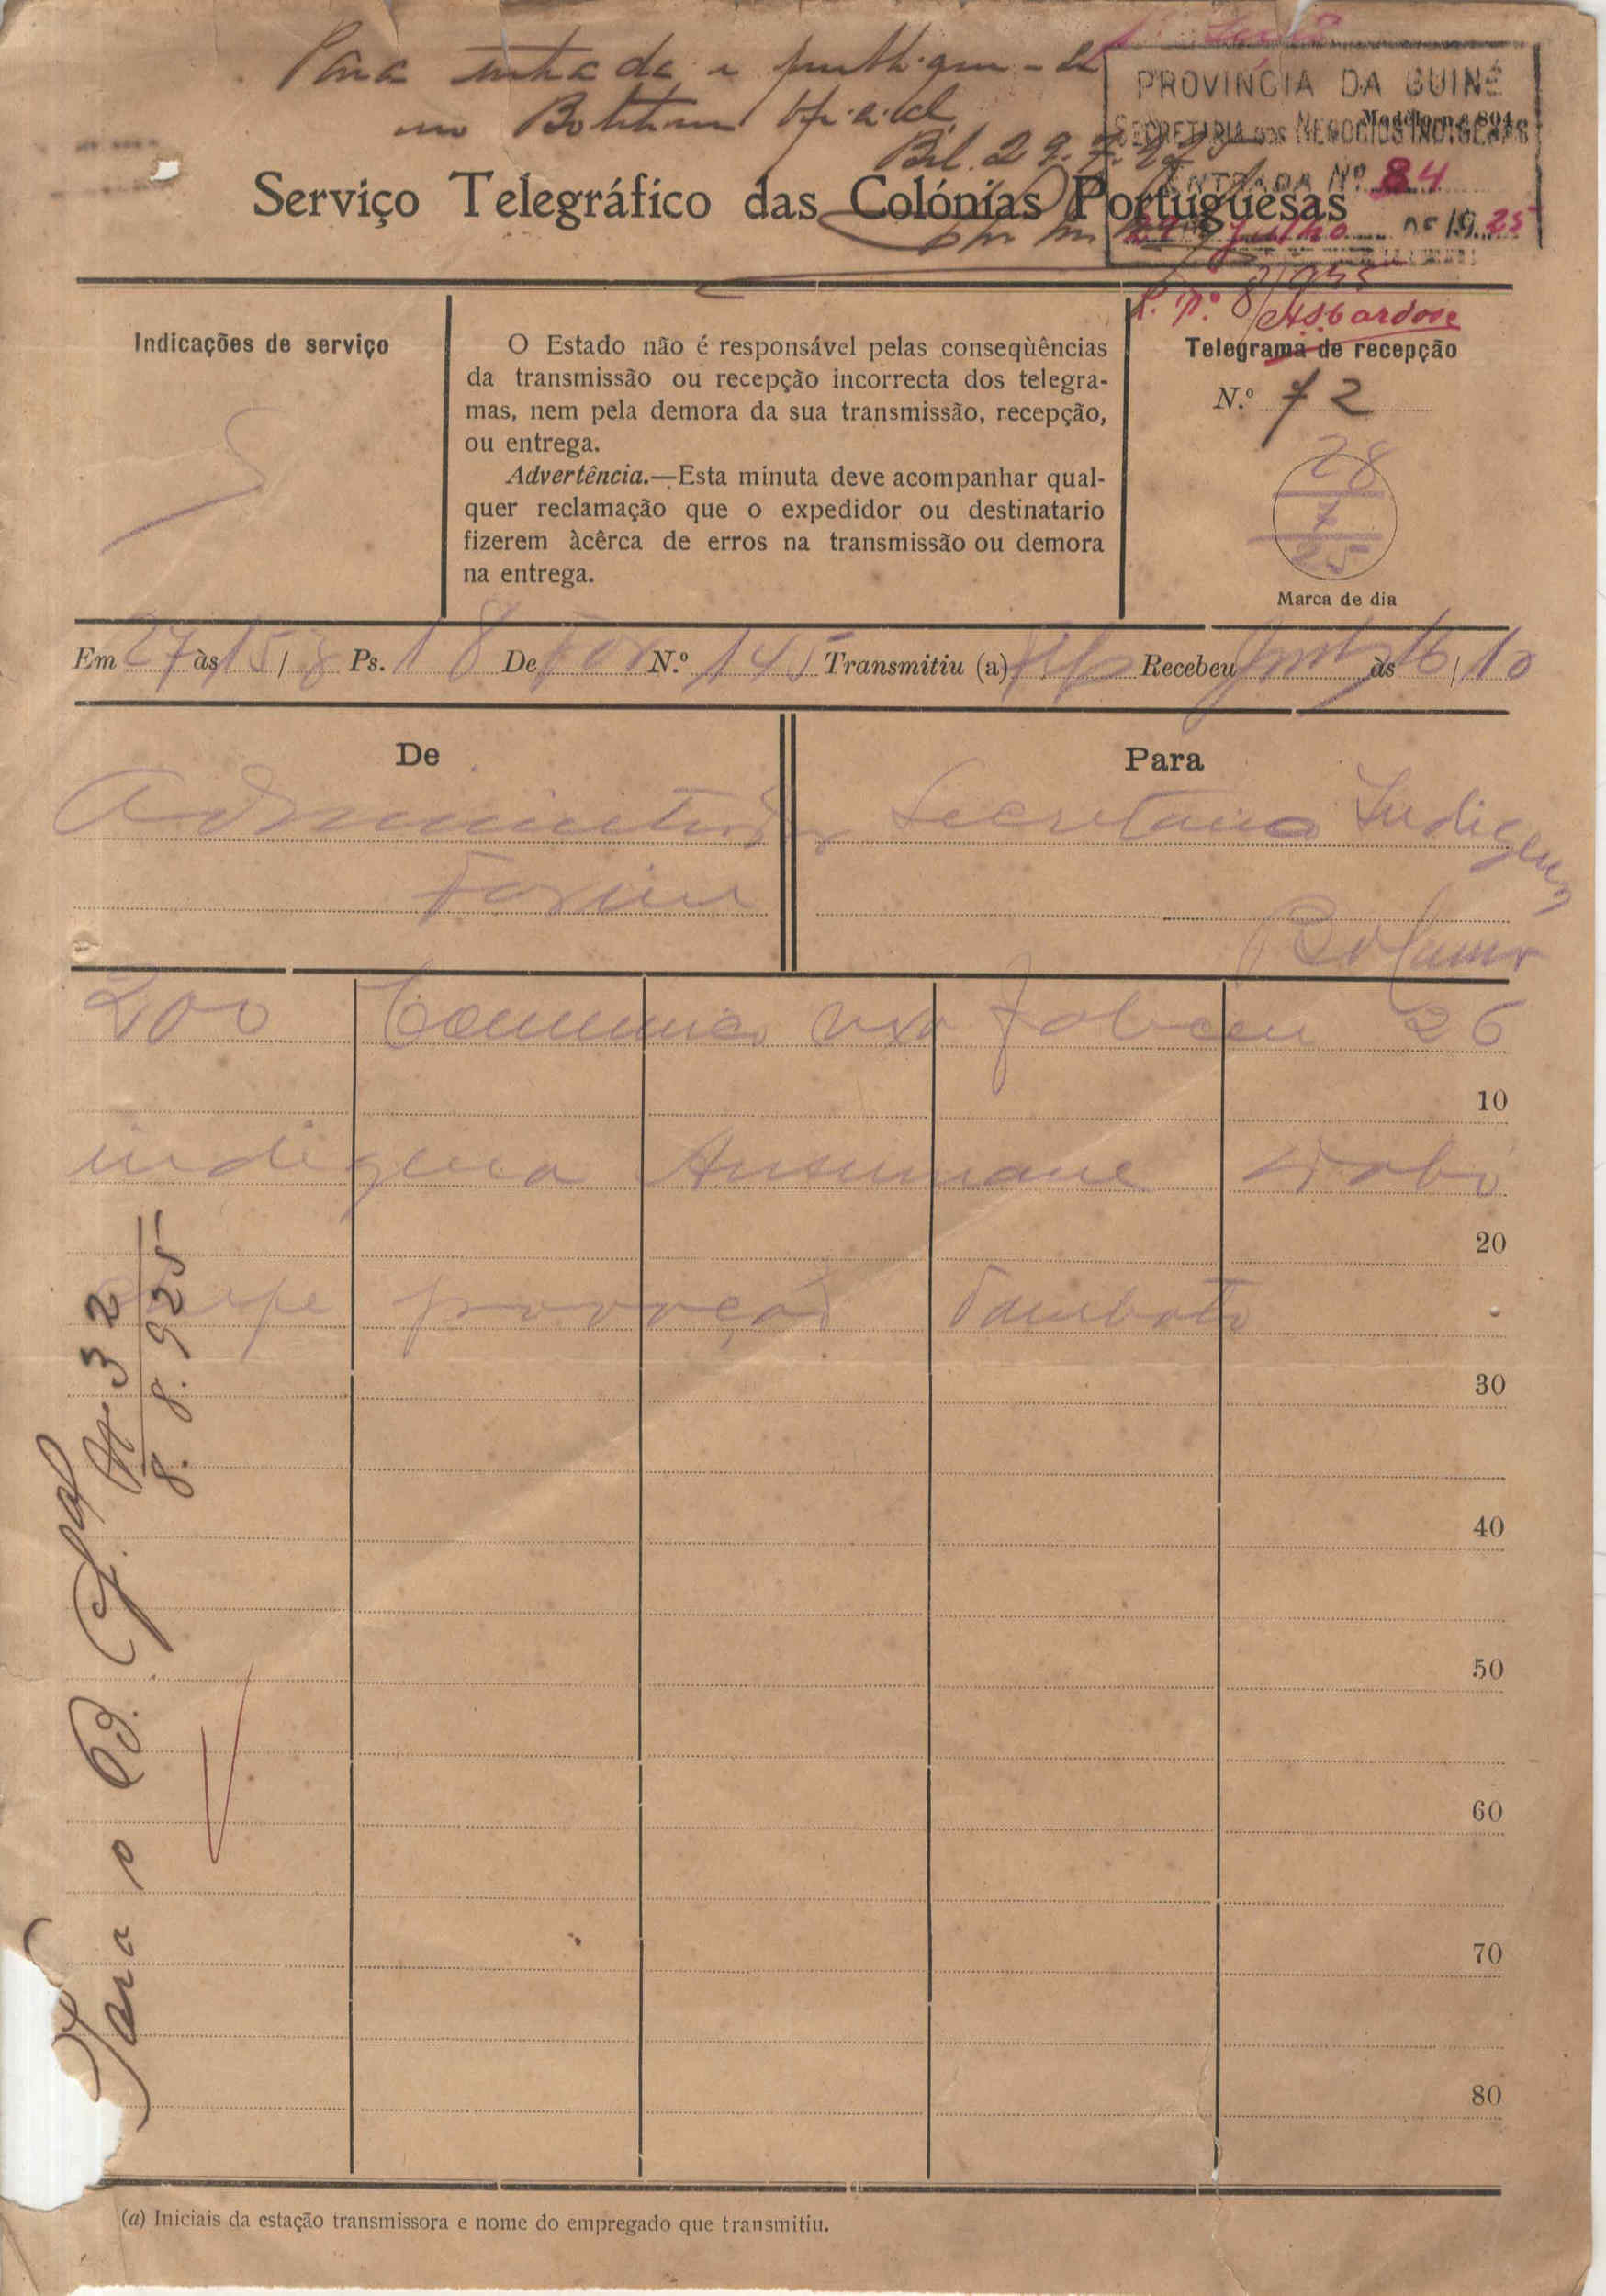 Para entrada e publique-se
no Boletim Oficial
Bol. 29.7.
PROVINCIA DA GUINÉ
SECRETARIA DOS NEGOCIOS INDIGENAS
ENTRADA Nº 84
29 Julho DE 1925
Serviço Telegráfico das Colónias Portuguesas
Indicações de serviço
O Estado não é responsável pelas conseqüências
da transmissão ou recepção incorrecta dos telegra-
mas, nem pela demora da sua transmissão, recepção,
ou entrega.
Advertência.—Esta minuta deve acompanhar qual-
quer reclamação que o expedidor ou destinatario
fizerem àcêrca de erros na transmissão ou demora
na entrega.
Telegrama de recepção
N.º 72
28
7
25
Marca de dia
Em 27 às 15/8 Ps. 18 De For N.º 145 Transmitiu (a) Recebeu às 16/10
De
Para
Administrador
Secretaria Indigena
Farim
Bolama
200 Comunico vexa faleceu 26
10
indigena Ansumane Dabó
20
povoção Tambato
30
40
50
60
70
80
Para o
Nº 32
8.8.925
(a) Iniciais da estação transmissora e nome do empregado que transmitiu.